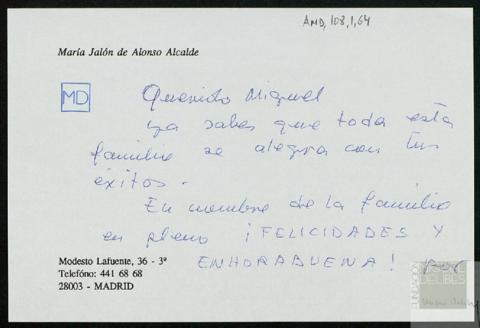 AMD, 108, 1, 64
María Jalón de Alonso Alcalde
MD
Querido Miguel
ya sabes que toda esta
familia se alegra con tus
éxitos.
En nombre de la familia
en pleno ¡FELICIDADES Y
ENHORABUENA!
Modesto Lafuente, 36 - 3º
Telefóno: 441 68 68
28003 - MADRID
FUNDACIÓN
DELIBES